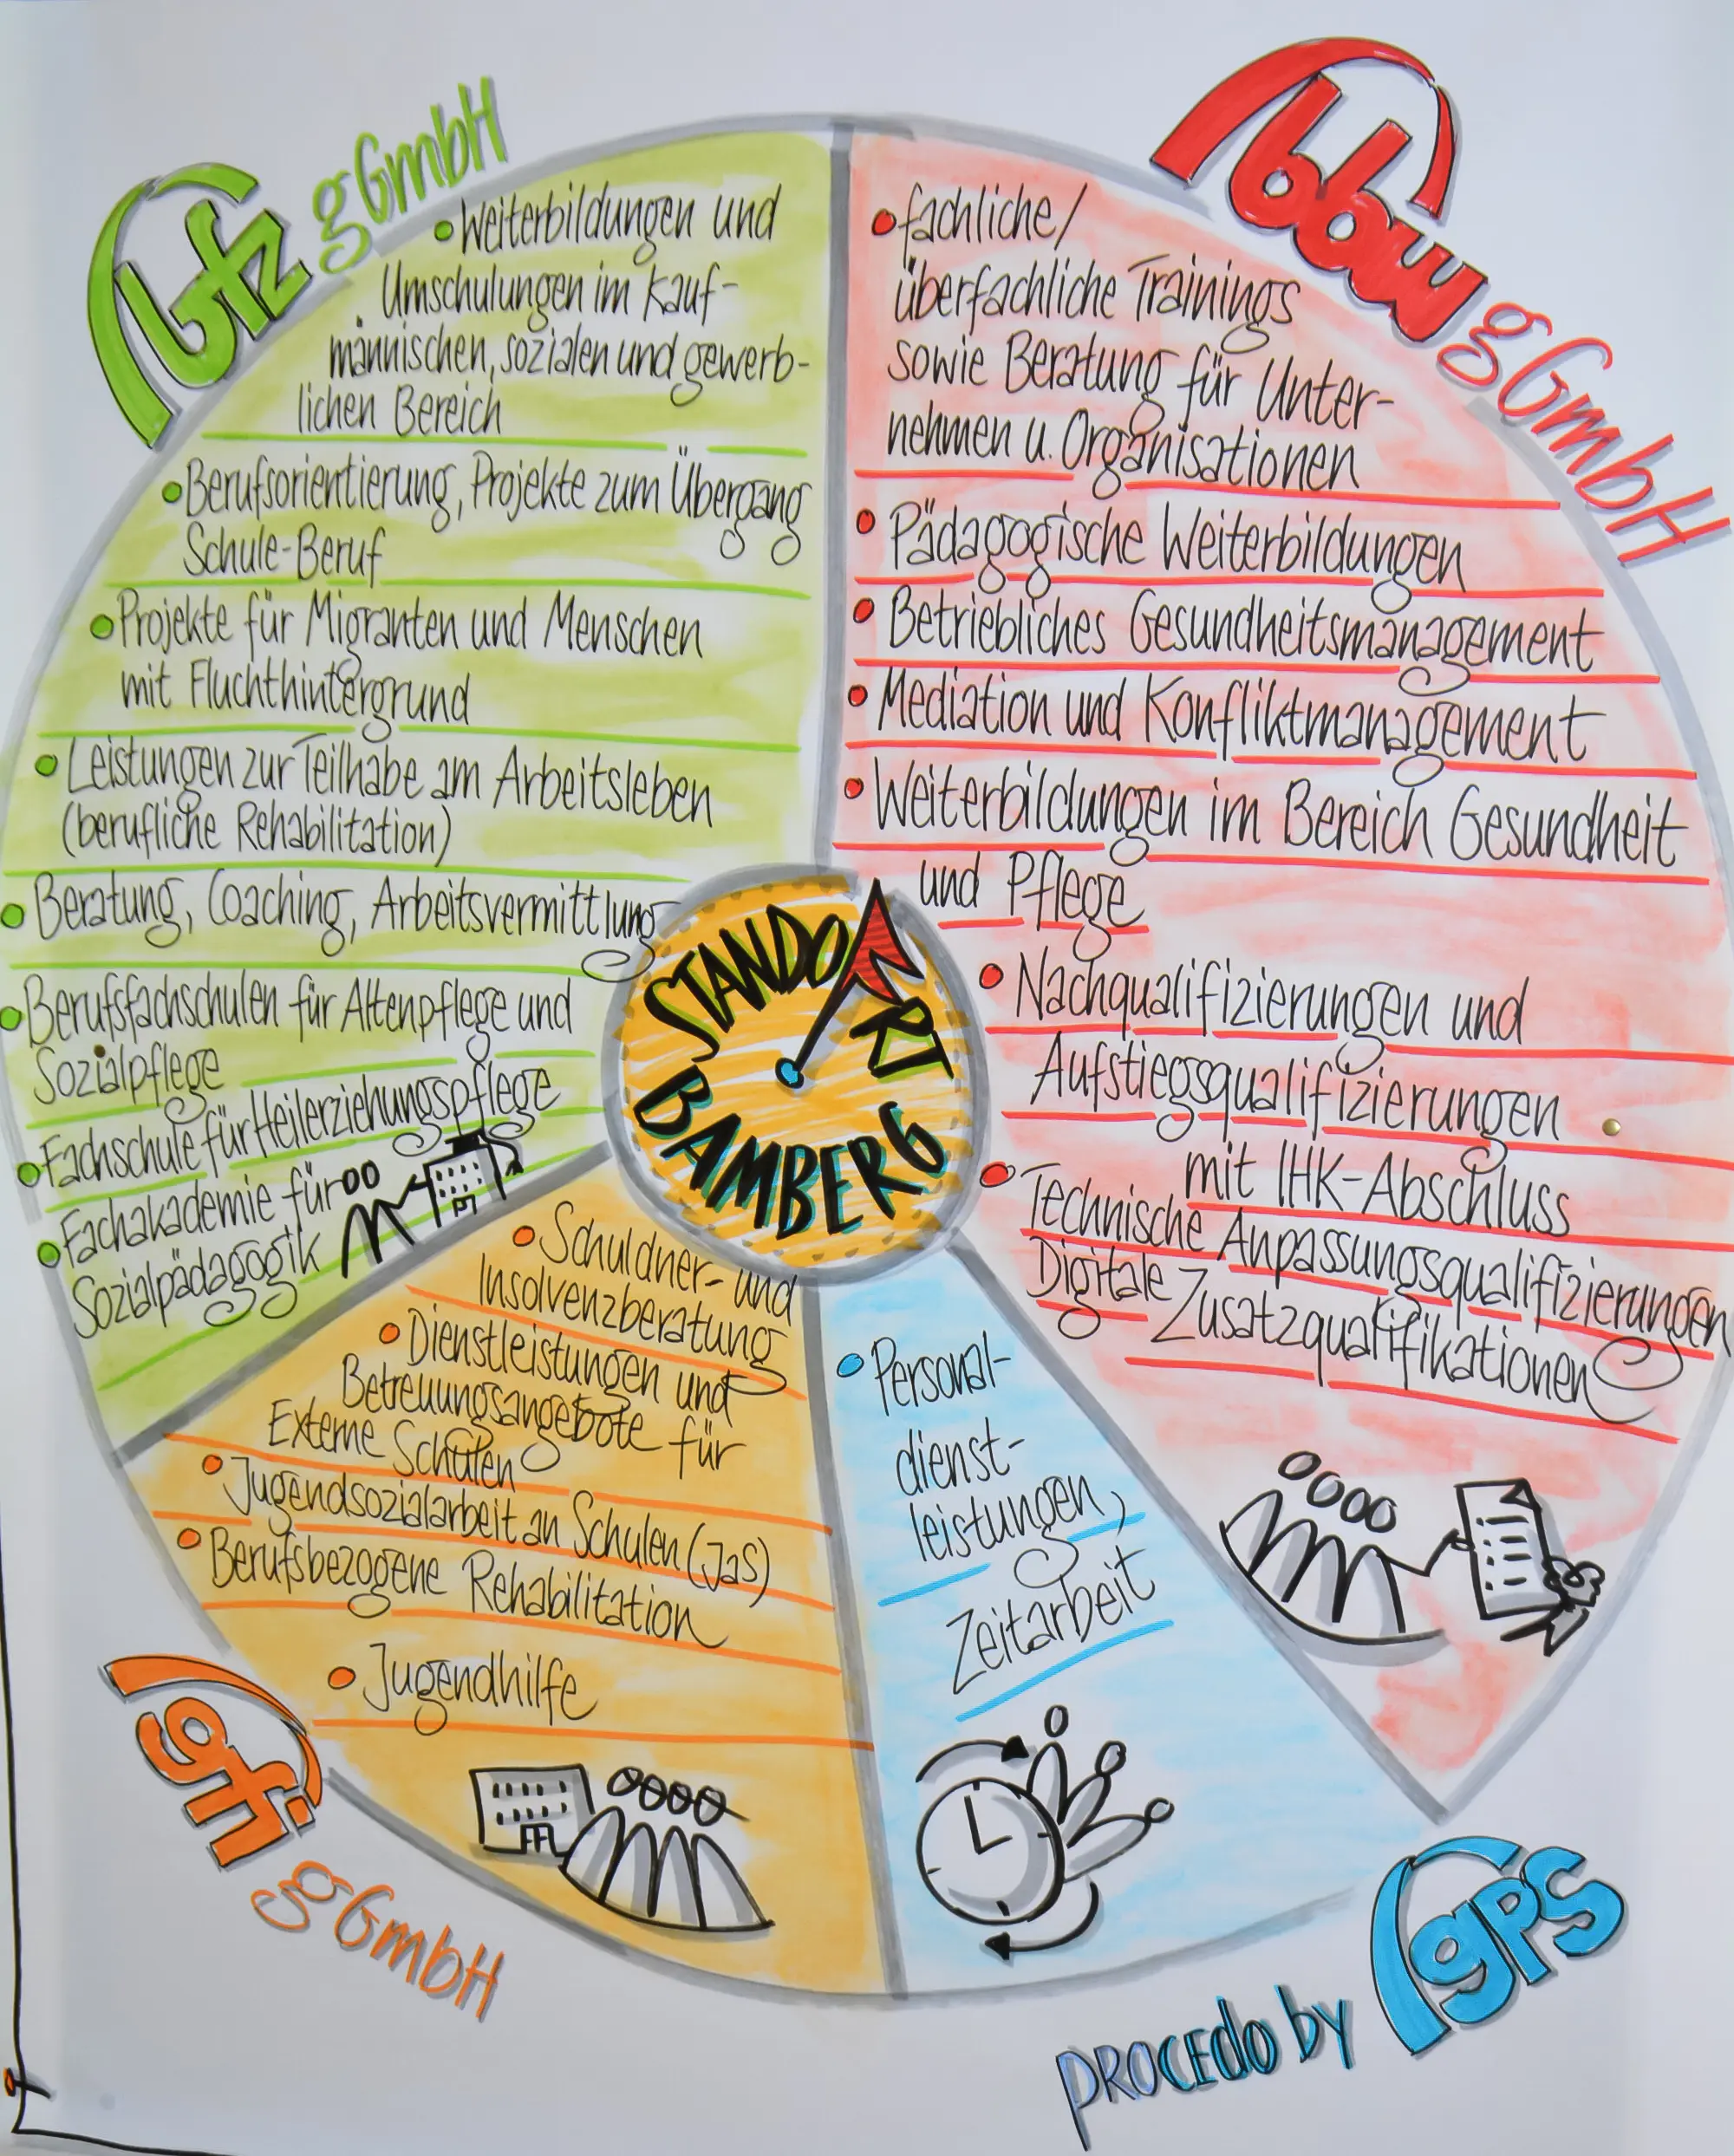 bfz gGmbH
• Weiterbildungen und
Umschulungen im kauf-
männischen, sozialen und gewerb-
lichen Bereich
• Berufsorientierung, Projekte zum Übergang
Schule-Beruf
• Projekte für Migranten und Menschen
mit Fluchthintergrund
• Leistungen zur Teilhabe am Arbeitsleben
(berufliche Rehabilitation)
• Beratung, Coaching, Arbeitsvermittlung
• Berufsfachschulen für Altenpflege und
Sozialpflege
• Fachschule für Heilerziehungspflege
• Fachakademie für
Sozialpädagogik
bbw gGmbH
• fachliche/
überfachliche Trainings
sowie Beratung für Unter-
nehmen u. Organisationen
• Pädagogische Weiterbildungen
• Betriebliches Gesundheitsmanagement
• Mediation und Konfliktmanagement
• Weiterbildungen im Bereich Gesundheit
und Pflege
• Nachqualifizierungen und
Aufstiegsqualifizierungen
mit IHK-Abschluss
• Technische Anpassungsqualifizierungen
Digitale Zusatzqualifikationen
STANDORT
BAMBERG
• Schuldner- und
Insolvenzberatung
• Dienstleistungen und
Betreuungsangebote für
Externe Schulen
• Jugendsozialarbeit an Schulen (JaS)
• Berufsbezogene Rehabilitation
• Jugendhilfe
gfi gGmbH
• Personal-
dienst-
leistungen,
Zeitarbeit
procedo by gps